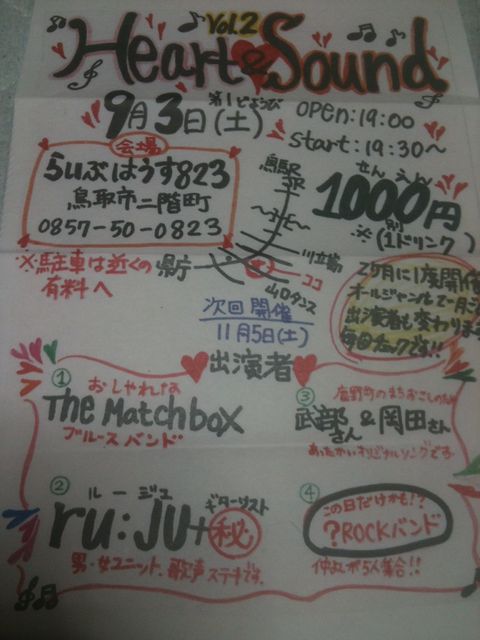 Vol.2
Heart & Sound
9月3日(土)
第1どようび
open:19:00
start:19:30〜
会場
らいぶはうす823
鳥取市二階町
0857-50-0823
鳥取
JR
せんえん
1000円
※(別1ドリンク)
※駐車は近くの
有料へ
県庁
ココ
2ヶ月に1度開催
オールジャンルで
出演者も変わります
毎回チェックです!!
次回開催
11月5日(土)
出演者
①
おしゃれな
The Matchbox
ブルースバンド
③
鹿野町のまちおこしの
武部さん&岡田さん
あったかいオリジナルソングです
②
ルージュ
ru:Ju+㊙
ギターリスト
男・女ユニット、歌声ステキです。
④
この日だけかも!?
?ROCKバンド
仲よしが5人集合!!